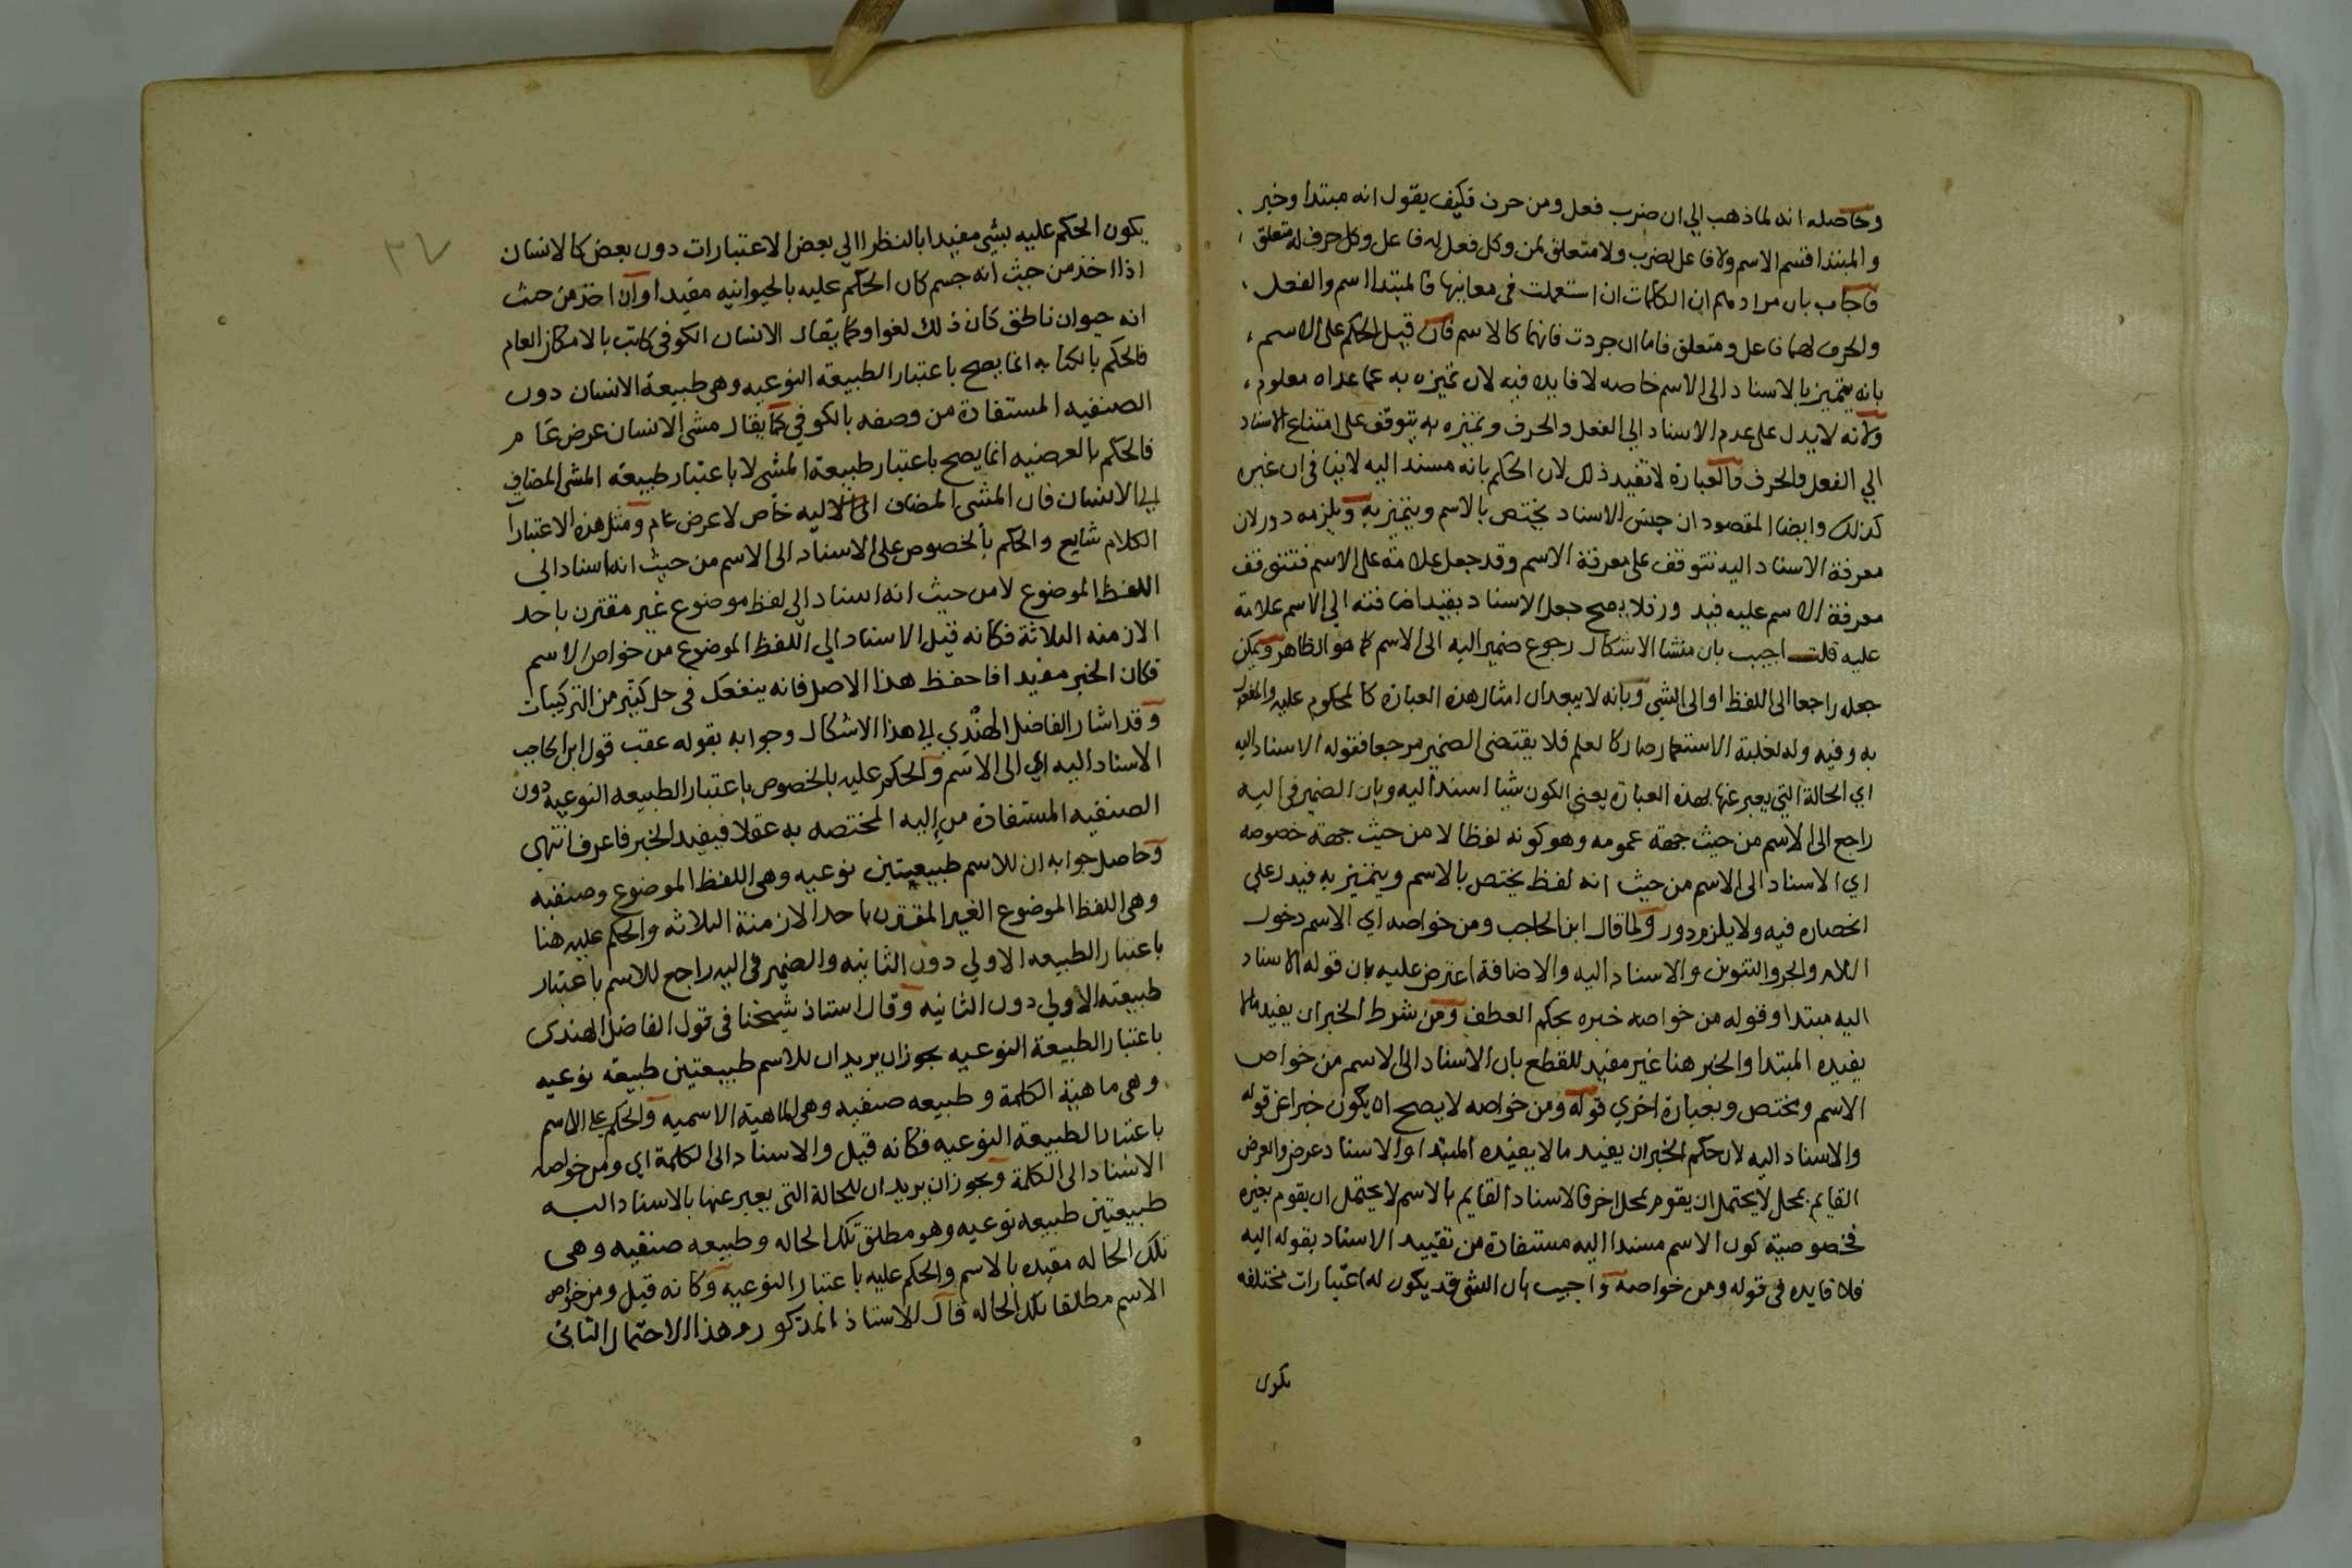 وحاصله انه لما ذهب الي ان ضرب فعل ومن حرف فكيف يقول انه مبتدا وخبر
والمبتدا قسم الاسم ولا فاعل لضرب ولا متعلق لمن وكل فعل له فاعل وكل حرف له متعلق
فاجاب بان مرادهم ان الكلمات ان استعملت في معانيها فالمبتدا اسم والفعل
والحرف لهما فاعل ومتعلق فاما ان جردت فانهما كالاسم فان قيل الحكم على الاسم
بانه يتميز بالاسناد الى الاسم خاصه لا فايده فيه لان تميزه به عما عداه معلوم
ولانه لا يدل على عدم الاسناد الي الفعل والحرف وتميزه به يتوقف على امتناع الاسناد
الي الفعل والحرف والعبارة لا تفيد ذلك لان الحكم بانه مسند اليه لا ينافى ان غيره
كذلك وايضا المقصود ان جنس الاسناد يختص بالاسم ويتميز به ويلزمه دور لان
معرفة الاسناد اليه تتوقف على معرفة الاسم وقد جعل علامة على الاسم فتتوقف
معرفة الاسم عليه فيدور فلا يصح جعل الاسناد بقيد اضافته الي الاسم علامة
عليه قلت اجيب بان منشا الاشكال رجوع ضمير اليه الى الاسم كما هو الظاهر ويمكن
جعله راجعا الى اللفظ او الى الشي وبانه لا يبعد ان امثال هذه العبارة كالمحكوم عليه والمفعول
به وفيه وله لغلبة الاستعمار صار كالعلم فلا يقتضى الضمير مرجعا فقوله الاسناد اليه
اي الحالة التي يعبر عنها بهذه العبارة يعني الكون شيا اسند اليه وبان الضمير في اليه
راجع الى الاسم من حيث جهة عمومه وهو كونه لفظا لا من حيث جهة خصوصه
اي الاسناد الى الاسم من حيث انه لفظ يختص بالاسم ويتميز به فيدل على
انحصاره فيه ولا يلزم دور ولما قال ابن الحاجب ومن خواصه اي الاسم دخول
اللام والجر والتنوين والاسناد اليه والاضافة اعترض عليه بان قوله الاسناد
اليه مبتدا وقوله من خواصه خبره بحكم العطف ومن شرط الخبر ان يفيد مالا
يفيده المبتدا والخبر هنا غير مفيد للقطع بان الاسناد الى الاسم من خواص
الاسم ومختص وبعبارة اخري قوله ومن خواصه لا يصح ان يكون خبرا عن قوله
والاسناد اليه لان حكم الخبر ان يفيد مالا يفيده المبتدا والاسناد عرض والعرض
القايم بمحل لا يحتمل ان يقوم بمحل اخر فالاسناد القايم بالاسم لا يحتمل ان يقوم بغيره
فخصوصية كون الاسم مسندا اليه مستفادة من تقييد الاسناد بقوله اليه
فلا فايده في قوله ومن خواصه واجيب بان الشي قد يكون له اعتبارات مختلفه
يكون
٣٧
يكون الحكم عليه بشي مفيدا بالنظر الي بعض الاعتبارات دون بعض كالانسان
اذا اخذ من حيث انه جسم كان الحكم عليه بالحيوانيه مفيدا وان اخذ من حيث
انه حيوان ناطق كان ذلك لغوا وكما يقال الانسان الكوفي كاتب بالامكان العام
فالحكم بالكتابه انما يصح باعتبار الطبيعة النوعيه وهي طبيعة الانسان دون
الصنفيه المستفادة من وصفه بالكوفي كما يقال مشى الانسان عرض عام
فالحكم بالعرضيه انما يصح باعتبار طبيعة المشى لا باعتبار طبيعة المشى المضاف
الي الانسان فان المشى المضاف اليه خاص لا عرض عام ومثل هذه الاعتبارات
الكلام شايع والحكم بالخصوص على الاسناد الى الاسم من حيث انه اسناد الي
اللفظ الموضوع لا من حيث انه اسناد الى لفظ موضوع غير مقترن باحد
الازمنه الثلاثة فكانه قيل الاسناد الي اللفظ الموضوع من خواص الاسم
فكان الخبر مفيدا فاحفظ هذا الاصل فانه ينفعك في حل كثير من التركيبات
وقد اشار الفاضل الهندي الي هذا الاشكال وجوابه بقوله عقب قول ابن الحاجب
الاسناد اليه اي الى الاسم والحكم عليه بالخصوص باعتبار الطبيعه النوعيه دون
الصنفيه المستفادة من اليه المختصه به عقلا فيفيد الخبر فاعرف انتهى
وحاصل جوابه ان للاسم طبيعتين نوعيه وهي اللفظ الموضوع وصنفيه
وهي اللفظ الموضوع الغير المقترن باحد الازمنة الثلاثه والحكم عليه هنا
باعتبار الطبيعه الاولي دون الثانيه والضمير في اليه راجع للاسم باعتبار
طبيعته الاولي دون الثانيه وقال استاذ شيخنا في قول الفاضل الهندى
باعتبار الطبيعة النوعيه يجوز ان يريد ان للاسم طبيعتين طبيعة نوعيه
وهي ماهية الكلمة وطبيعه صنفيه وهي الماهية الاسميه والحكم على الاسم
باعتبار الطبيعة النوعيه فكانه قيل والاسناد الى الكلمة اي ومن خواصه
الاسناد الى الكلمة ويجوز ان يريد ان للحالة التي يعبر عنها بالاسناد اليه
طبيعتين طبيعه نوعيه وهو مطلق تلك الحاله وطبيعه صنفيه وهي
تلك الحاله مقيده بالاسم والحكم عليه باعتبار النوعيه وكانه قيل ومن خواص
الاسم مطلقا تلك الحاله قال الاستاذ المذكور وهذا الاحتمال الثاني